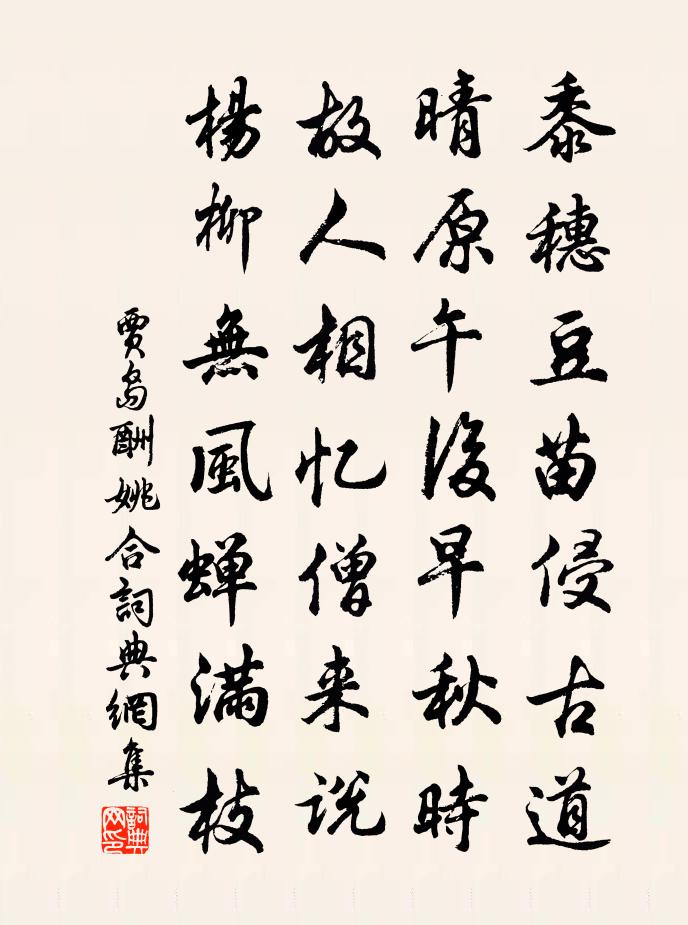 黍穗豆苗侵古道
晴原午後早秋時
故人相忆僧来说
楊柳無風蝉满枝
賈島酬姚合詞典網集
詞典网印